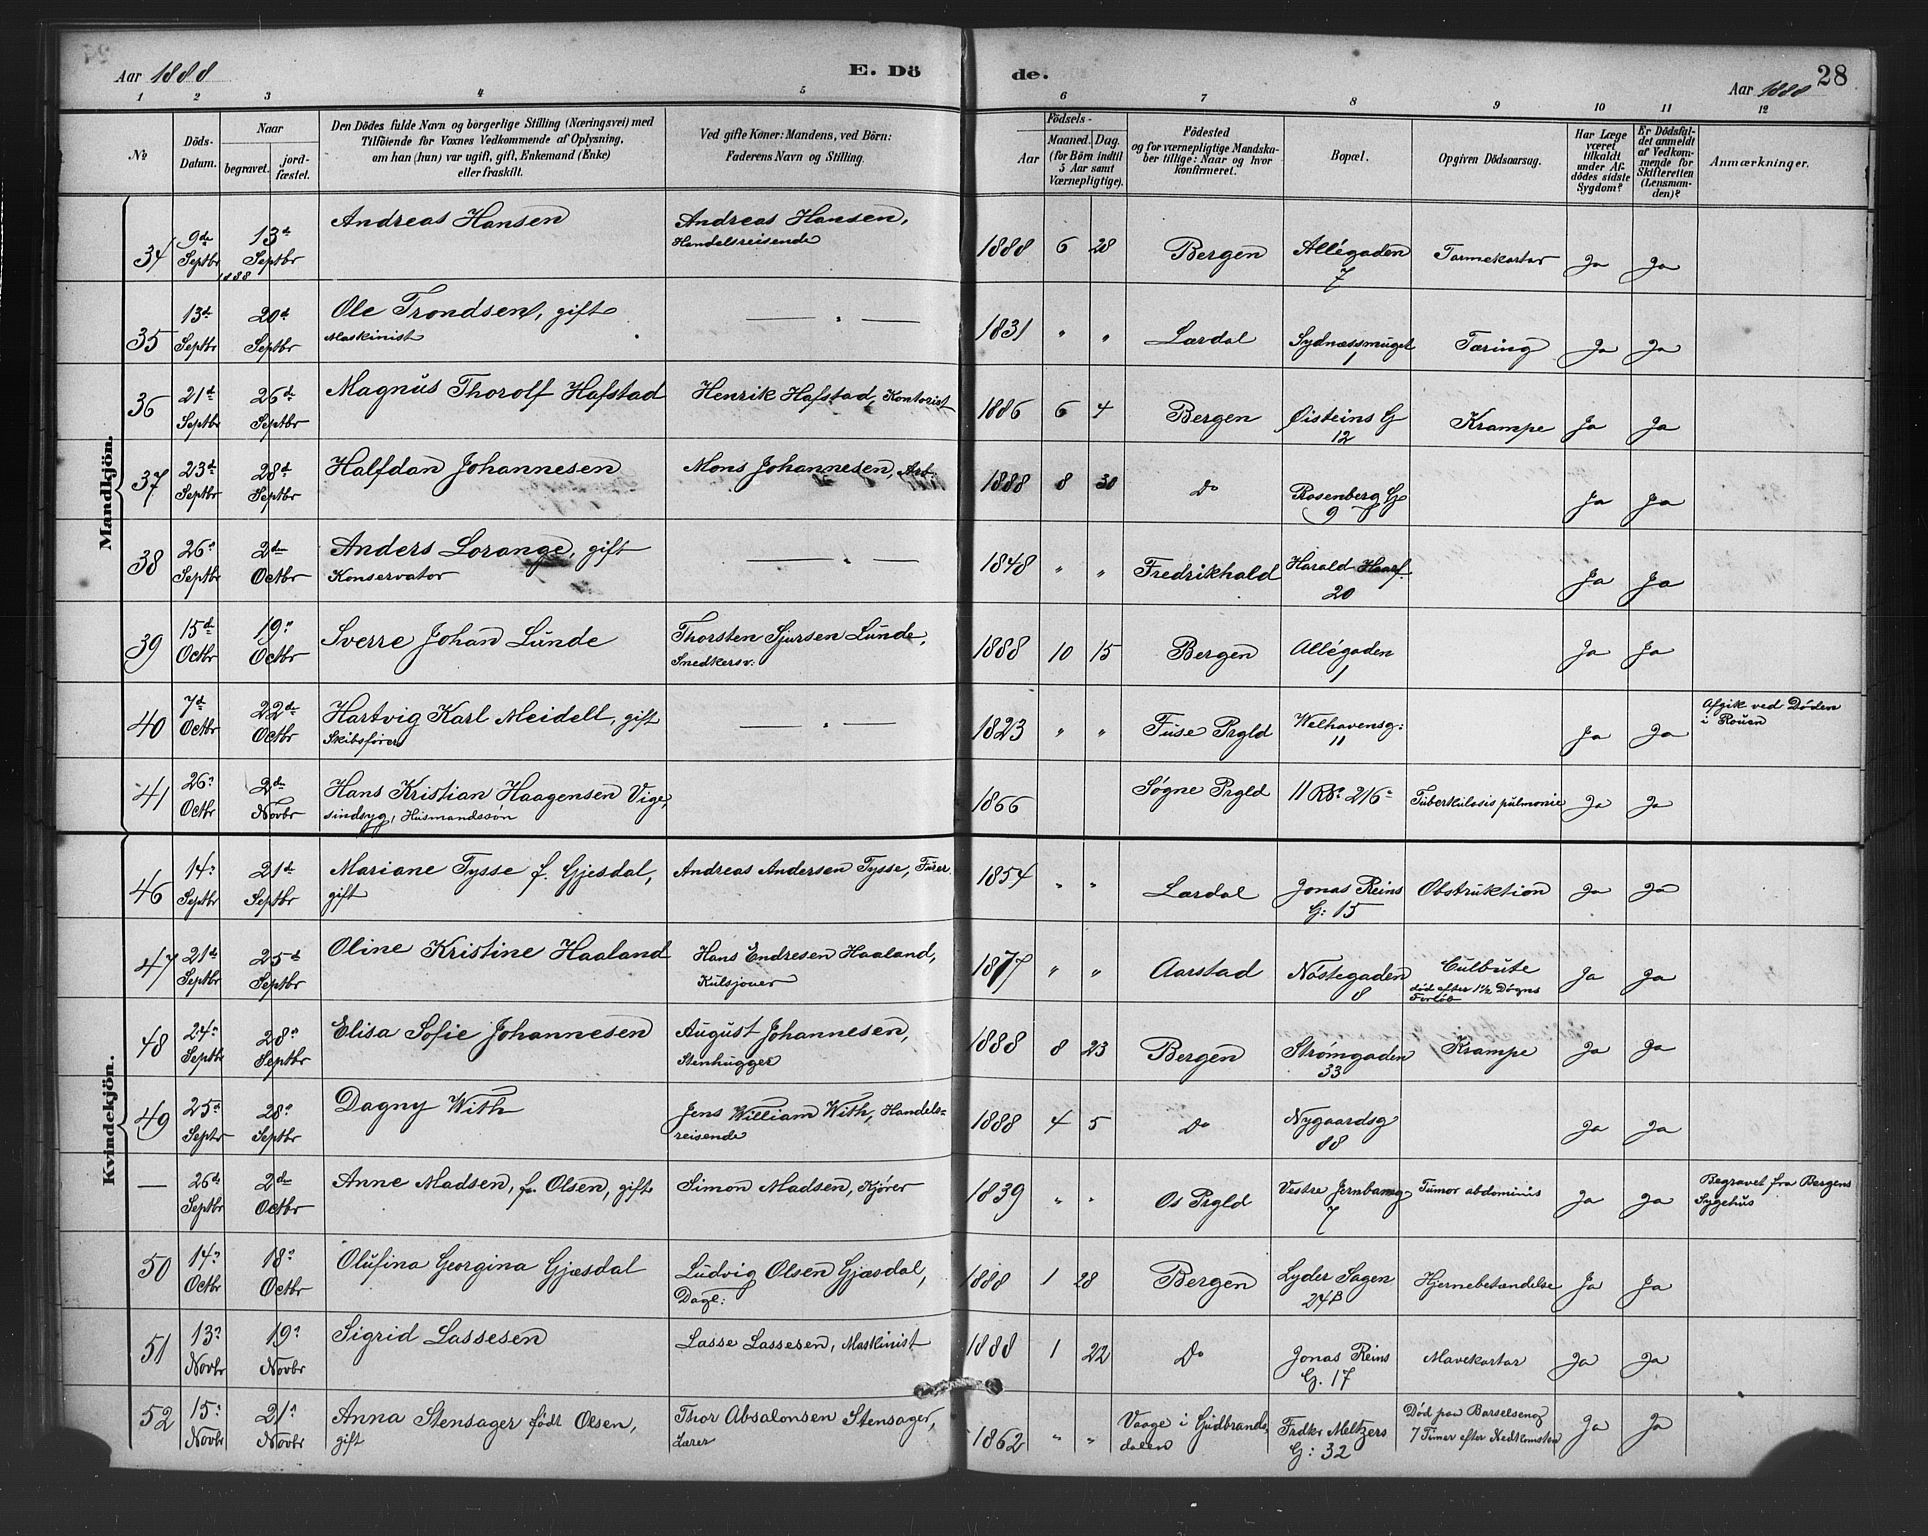 Aar 1888
E. Dö
de.
Aar 1888
28
1 2 3 4 5 6 7 8 9 10 11 12
No
Döds-
Datum.
Naar
begravet.
jord-
fæstet.
Den Dödes fulde Navn og borgerlige Stilling (Næringsvei) med
Tilföiende for Voxnes Vedkommende af Oplysning,
om han (hun) var ugift, gift, Enkemand (Enke)
eller fraskilt.
Ved gifte Koner: Mandens, ved Börn:
Faderens Navn og Stilling.
Födsels-
Aar
Maaned. Dag.
(for Börn indtil
5 Aar samt
Værnepligtige).
Födested
og for værnepligtige Mandska-
ber tillige: Naar og hvor
konfirmeret.
Bopæl.
Opgiven Dödsaarsag.
Har Læge
været
tilkaldt
under Af-
dödes sidste
Sygdom?
Er Dödsfal-
det anmeldt
af Vedkom-
mende for
Skifteretten
(Lensman-
den)?
Anmærkninger.
Mandkjön.
34 9de Septbr 1888 13d Septbr Andreas Hansen Andreas Hansen, Handelsreisende 1888 6 28 Bergen Allégaden 7 Tarmekatar Ja Ja
35 13d Septbr 20d Septbr Ole Trondsen, gift Maskinist — " — 1831 " " Lærdal Sydnæssmuget 1 Tæring Ja Ja
36 21d Septbr 26d Septbr Magnus Thorolf Hafstad Henrik Hafstad, Kontorist 1886 6 4 Bergen Øisteins G 12 Krampe Ja Ja
37 23d Septbr 28d Septbr Halfdan Johannesen Mons Johannesen, Arb. 1888 8 30 Do Rosenberg G 9 Ja Ja
38 26' Septbr 2de Octbr Anders Lorange, gift Konservator — " — 1848 " " Fredrikhald Harald Haarf. 20 Ja Ja
39 15d Octbr 19" Octbr Sverre Johan Lunde Thorsten Sjursen Lunde, Snedkersv: 1888 10 15 Bergen Allégaden 1 Ja Ja
40 7d Octbr 22de Octbr Hartvig Karl Meidell, gift Skibsfører — " — 1823 " " Fuse Prgld Welhavensg: 11 Ja Ja Afgik ved Døden i Rouen
41 26' Octbr 2de Novbr Hans Kristian Haagensen Vige, sindsyg, Husmandssøn 1866 Søgne Prgld 11 Rd. 216 Tuberkulosis pulmonie Ja Ja
Kvindekjön.
46 14' Septbr 21d Septbr Mariane Tysse f. Gjesdal, gift Andreas Andersen Tysse, Furer. 1854 " " Lærdal Jonas Reins G: 15 Obstruktion Ja Ja
47 21d Septbr 25d Septbr Oline Kristine Haaland Hans Endresen Haaland, Kulsjouer 1877 " " Aarstad Nøstegaden 8 Culbute død efter 1½ Døgns Forløb Ja Ja
48 24' Septbr 28' Septbr Elisa Sofie Johannesen August Johannesen, Stenhugger 1888 8 23 Bergen Strømgaden 33 Krampe Ja Ja
49 25' Septr 28' Septbr Dagny With Jens William With, Handels-
reisende 1888 4 5 Do Nygaardsg 88 Ja Ja
— 26d Septbr 2de Octbr Anne Madsen, f. Olsen, gift Simon Madsen, Kjører 1839 " " Os Prgld Vestre Jernbaneg 7 Tumor abdominis Ja Ja Begravet fra Bergens Sygehus
50 14' Octbr 18' Octbr Olufina Georgina Gjæsdal Ludvig Olsen Gjæsdal, Dagl: 1888 1 28 Bergen Lyder Sagen 24B Hjernebetændelse Ja Ja
51 13' Novbr 19' Novbr Sigrid Lassesen Lasse Lassesen, Maskinist 1888 1 22 Do Jonas Reins G. 17 Mavekatar Ja Ja
52 15' Novbr 21' Novbr Anna Stensager født Olsen, gift Thor Absalonsen Stensager, Lærer 1862 " " Vaage i Gudbrands-
dalen Frdkr Meltzers G: 32 Død paa Barselseng 7 Timer efter Nedkomsten Ja Ja